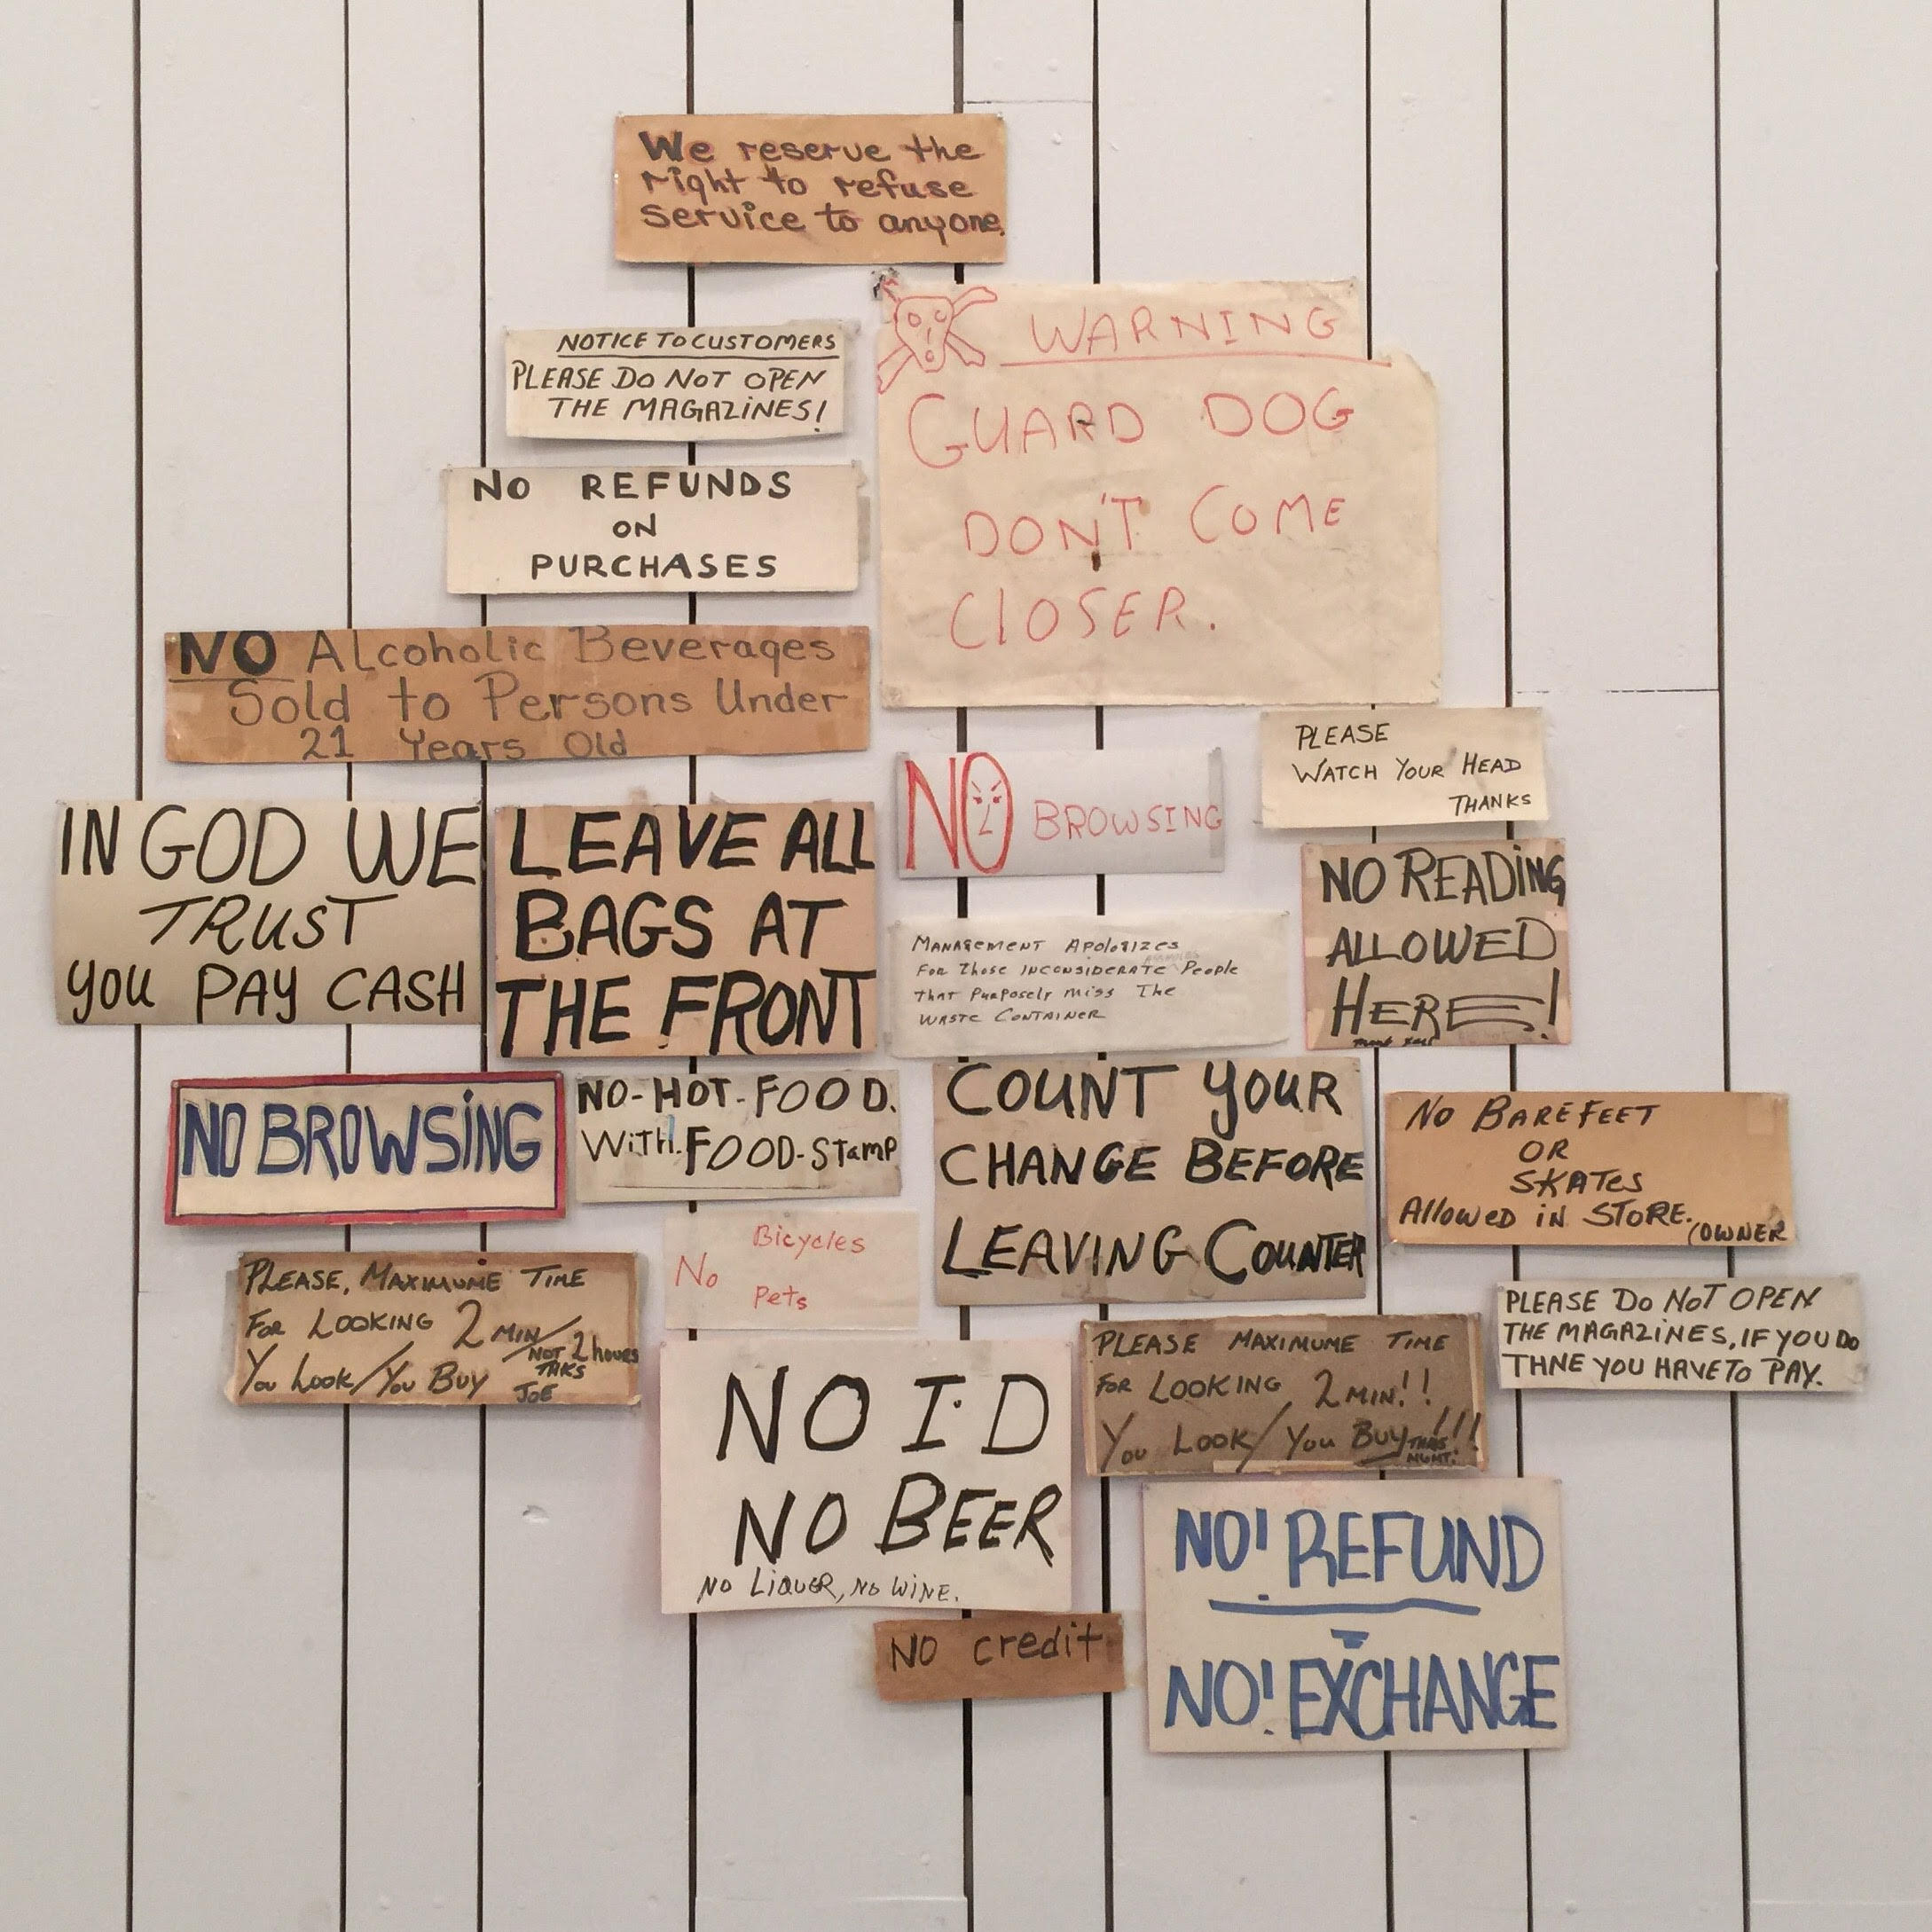 We reserve the
right to refuse
service to anyone.
WARNING
GUARD DOG
DON'T COME
ClOSER.
NOTICE TO CUSTOMERS
PLEASE DO NOT OPEN
THE MAGAZINES!
NO REFUNDS
ON
PURCHASES
NO Alcoholic Beverages
Sold to Persons Under
21 Years Old
PLEASE
WATCH YOUR HEAD
THANKS
NO BROWSING
IN GOD WE
TRUST
you PAY CASH
LEAVE ALL
BAGS AT
THE FRONT
NO READING
ALLOWED
HERE!
MANAGEMENT Apologizes
FOR Those INCONSIDERATE People
that Purposely miss The
WASTE CONTAINER
NO BROWSING
NO-HOT-FOOD.
WITH-FOOD-STamP
COUNT YOUR
CHANGE BEFORE
LEAVING COUNTER
NO BAREFEET
OR
SKATES
Allowed in STORE.
(OWNER
Bicycles
No
Pets
PLEASE, MAXIMUME TIME
FOR LOOKING 2 MIN/NOT 2 hours
You Look/You Buy
JOE
PLEASE DO NOT OPEN
THE MAGAZINES, IF YOU DO
THNE YOU HAVE TO PAY.
PLEASE MAXIMUME TIME
FOR LOOKING 2 MIN!!
You Look/You Buy !!!
NO I.D
NO BEER
NO LIQUER, NO WINE.
NO credit
NO! REFUND
NO! EXCHANGE